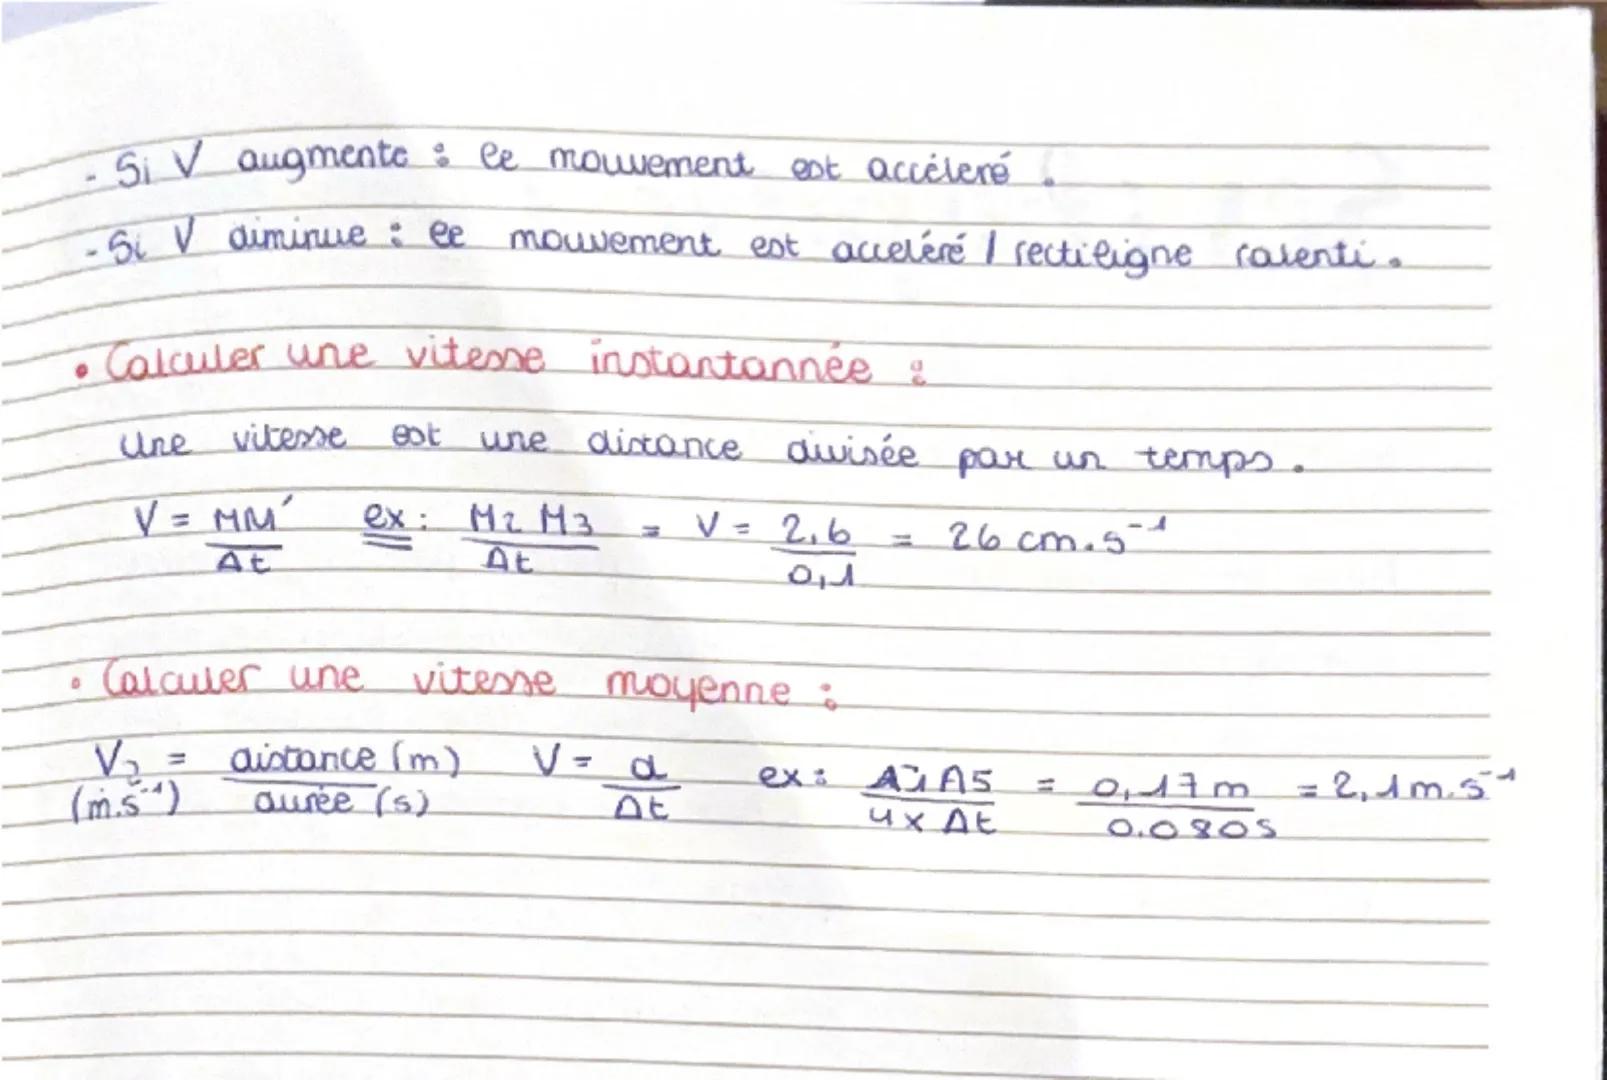 - Si V augmente : le mouvement est accéleré .
- Si V diminue : le mouvement est acceléré / rectiligne ralenti .
• Calculer une vitesse instantannée :
Une vitesse est une distance divisée par un temps .
V = MM' / Δt ex : M2 M3 / Δt = V = 2,6 / 0,1 = 26 cm.s⁻¹
• Calculer une vitesse moyenne :
V (m.s⁻¹) = distance (m) / durée (s) V = d / Δt ex : A1A5 / 4 x Δt = 0,17 m / 0.080s = 2,1 m.s⁻¹